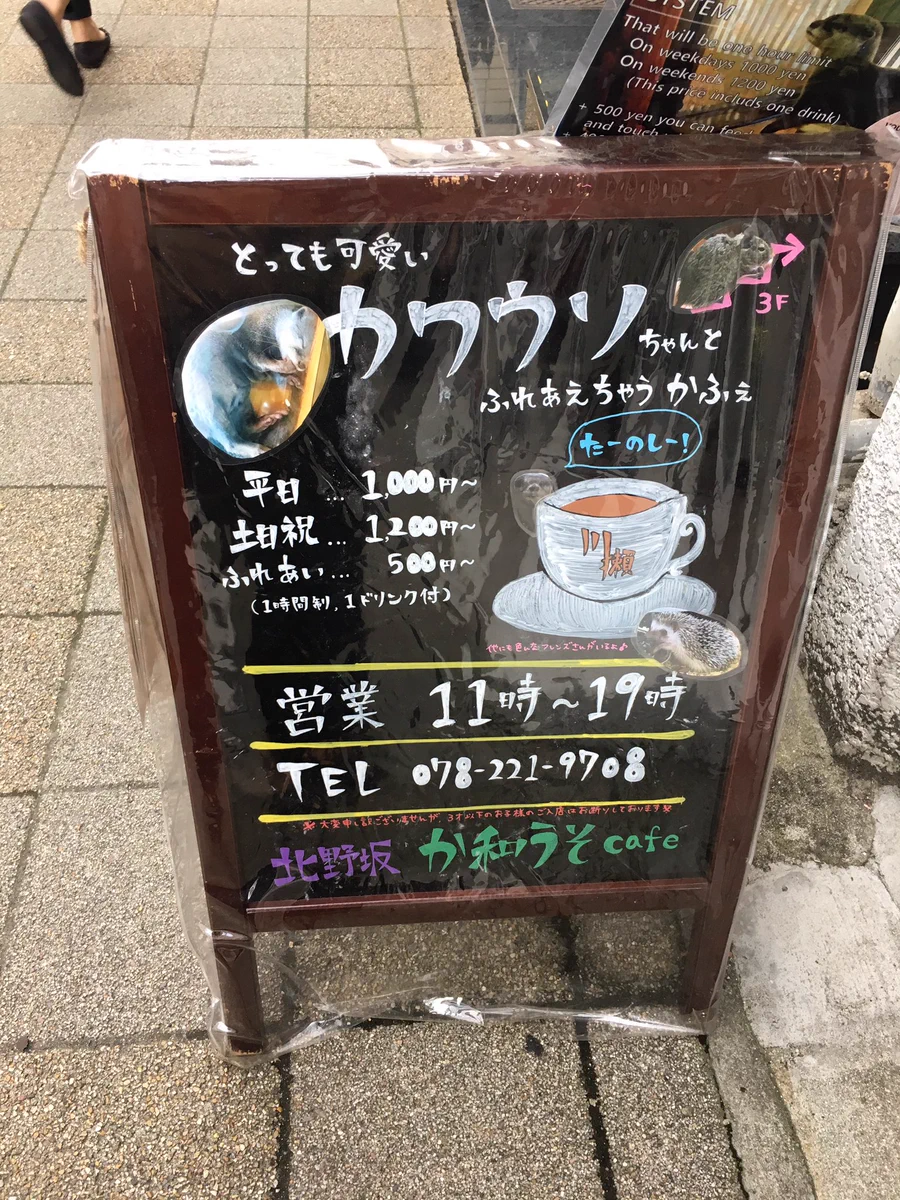 SYSTEM
That will be one hour limit
On weekdays 1000 yen
On weekends 1200 yen
(This price includs one drink)
+ 500 yen you can feed
and touch
とっても可愛い
3F
カワウソ
ちゃんと
ふれあえちゃう かふぇ
たーのしー!
平日 … 1,000円~
土日祝 … 1,200円~
ふれあい … 500円~
(1時間制, 1ドリンク付)
川獺
他にも色んなフレンズさんがいるよ♪
営業 11時~19時
TEL 078-221-9708
※大変申し訳ございませんが、3才以下のお子様のご入店はお断りしております※
北野坂 か和うそcafe